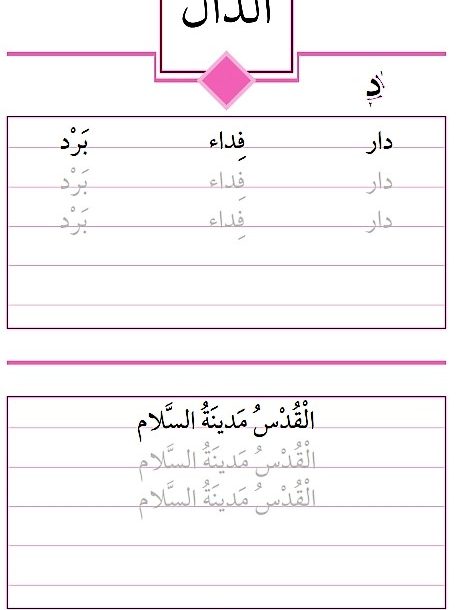 الدال
د
دار فِداء بَرْد
دار فِداء بَرْد
دار فِداء بَرْد
الْقُدْسُ مَدينَةُ السَّلام
الْقُدْسُ مَدينَةُ السَّلام
الْقُدْسُ مَدينَةُ السَّلام